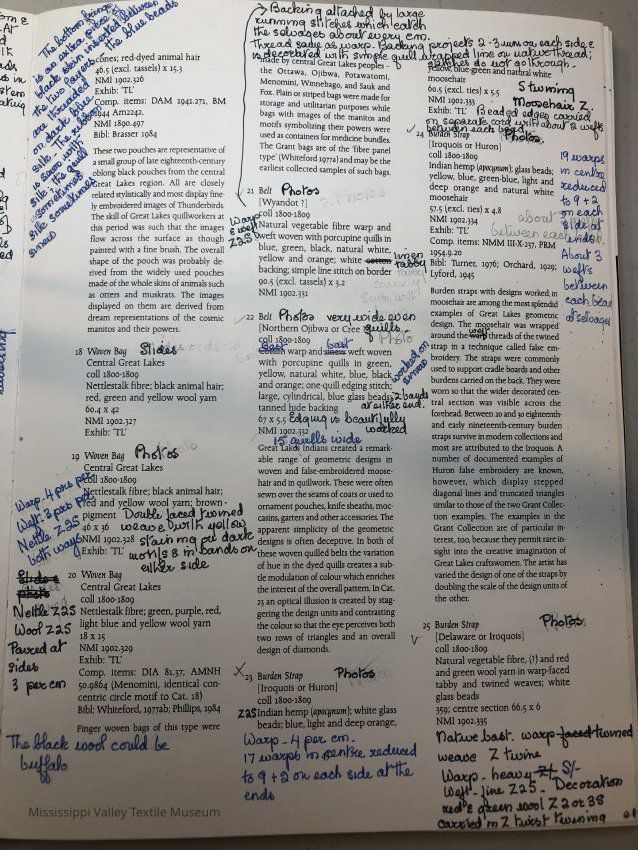 The bottom fringe
is an extra piece of
black skin inserted between
the two layers. The blue beads
are stranded
on dark blue
silk. The rolled
is sewn with
sometimes
silk sometimes
sinew
Backing attached by large
running stitches which catch
the selvages about every cm.
Thread same as warp. Backing projects 2-3mm on each side &
is decorated with simple quill wrapped line on native thread;
stitches do not go through.
cones; red-dyed animal hair
46.5 (excl. tassels) x 15.3
NMI 1902.326
Exhib: 'TL'
Comp. items: DAM 1941.271, BM
1944 Am2242.
NMI 1800.497
Bibl: Brasser 1984
These two pouches are representative of
a small group of late eighteenth-century
oblong black pouches from the central
Great Lakes region. All are closely
related stylistically and most display fine-
ly embroidered images of Thunderbirds.
The skill of Great Lakes quillworkers at
this period was such that the images
flow across the surface as though
painted with a fine brush. The overall
shape of the pouch was probably de-
rived from the widely used pouches
made of the whole skins of animals such
as otters and muskrats. The images
displayed on them are derived from
dream representations of the cosmic
manitos and their powers.
18 Woven Bag Slides
Central Great Lakes
coll 1800-1809
Nettlestalk fibre; black animal hair;
red, green and yellow wool yarn
60.4 x 42
NMI 1902.327
Exhib: 'TL'
19 Woven Bag Photos
Central Great Lakes
coll 1800-1809
Nettlestalk fibre; black animal hair;
red and yellow wool yarn; brown
pigment Double faced twined
46 x 36 weave with yellow
NMI 1902.328 staining pu dark
Exhib: 'TL' motifs & in bands on
either side
Warp-4 pers per
Weft-3 pers per
Nettle Z2S
both ways
20 Woven Bag
Central Great Lakes
coll 1800-1809
Nettlestalk fibre; green, purple, red,
light blue and yellow wool yarn
18 x 15
NMI 1902.329
Exhib: 'TL'
Comp. items: DIA 81.37; AMNH
50.9864 (Menomini, identical con-
centric circle motif to Cat. 18)
Bibl: Whiteford, 1977ab; Phillips, 1984
Slide &
photo
Nettle Z2S
Wool Z2S
Paired at
sides
3 per cm
Finger woven bags of this type were
The black wool could be
buffalo
made by central Great Lakes peoples -
the Ottawa, Ojibwa, Potawatomi,
Menomini, Winnebago, and Sauk and
Fox. Plain or striped bags were made for
storage and utilitarian purposes while
bags with images of the manitos and
motifs symbolizing their powers were
used as containers for medicine bundles.
The Grant bags are of the 'fibre panel
type' (Whiteford 1977a) and may be the
earliest collected samples of such bags.
21 Belt Photos
[Wyandot ?]
coll 1800-1809
Natural vegetable fibre warp and
weft woven with porcupine quills in
blue, green, black, natural white,
yellow and orange; white cotton linen
backing; simple line stitch on border tabby
90.5 (excl. tassels) x 3.2
NMI 1902.331
Warp
& weft
Z2S
22 Belt Photos very wide even
[Northern Ojibwa or Cree] quills.
coll 1800-1809
bast bast
Cotton warp and sinew weft woven
with porcupine quills in green,
yellow, natural white, blue, black
and orange; one quill edging stitch;
large, cylindrical, blue glass beads; 2 bands
tanned hide backing at either end.
67 x 5.5 Edging is beautifully
NMI 1902.332 worked
15 quills wide
worked on
sinew
Great Lakes Indians created a remark-
able range of geometric designs in
woven and false-embroidered moose-
hair and in quillwork. These were often
sewn over the seams of coats or used to
ornament pouches, knife sheaths, moc-
casins, garters and other accessories. The
apparent simplicity of the geometric
designs is often deceptive. In both of
these woven quilled belts the variation
of hue in the dyed quills creates a sub-
tle modulation of colour which enriches
the interest of the overall pattern. In Cat.
23 an optical illusion is created by stag-
gering the design units and contrasting
the colour so that the eye perceives both
two rows of triangles and an overall
design of diamonds.
X 23 Burden Strap Photos
[Iroquois or Huron]
coll 1800-1809
Z2S Indian hemp (apocynum); white glass
beads; blue, light and deep orange,
Warp - 4 per cm.
17 warps in centre reduced
to 9 + 2 on each side at the
ends
yellow, blue-green and natural white
moosehair
60.5 (excl. ties) x 5.5
NMI 1902.333
Exhib: 'TL' Beaded edges carried
on separate cord with about 2 wefts
between each bead.
S twining
Moosehair Z.
24 Burden Strap Photos.
[Iroquois or Huron]
coll 1800-1809
Indian hemp (apocynum); glass beads;
yellow, blue, green-blue, light and
deep orange and natural white
moosehair
57.5 (excl. ties) x 4.8
NMI 1902.334
Exhib: 'TL'
Comp. items: NMM III-X-237, PRM
1954.9.20
Bibl: Turner, 1976; Orchard, 1929;
Lyford, 1945
19 warps
in centre
reduced
to 9 +
2 on each
side at
ends
About 3
wefts
between
each bead
at selvages
Burden straps with designs worked in
moosehair are among the most splendid
examples of Great Lakes geometric
design. The moosehair was wrapped
around the warp weft threads of the twined
strap in a technique called false em-
broidery. The straps were commonly
used to support cradle boards and other
burdens carried on the back. They were
worn so that the wider decorated cen-
tral section was visible across the
forehead. Between 20 and 30 eighteenth-
and early nineteenth-century burden
straps survive in modern collections and
most are attributed to the Iroquois. A
number of documented examples of
Huron false embroidery are known,
however, which display stepped
diagonal lines and truncated triangles
similar to those of the two Grant Collec-
tion examples. The examples in the
Grant Collection are of particular in-
terest, too, because they permit rare in-
sight into the creative imagination of
Great Lakes craftswomen. The artist has
varied the design of one of the straps by
doubling the scale of the design units of
the other.
25 Burden Strap Photos.
[Delaware or Iroquois]
coll 1800-1809
Natural vegetable fibre, (?) and red
and green wool yarn in warp-faced
tabby and twined weaves; white
glass beads
359; centre section 66.5 x 6
NMI 1902.335
Native bast. warp faced twined
weave Z twine
Warp - heavy Z/ S/-
Weft - fine Z2S - Decoration
red & green wool Z2 or 3S
carried in Z twist twining
Mississippi Valley Textile Museum